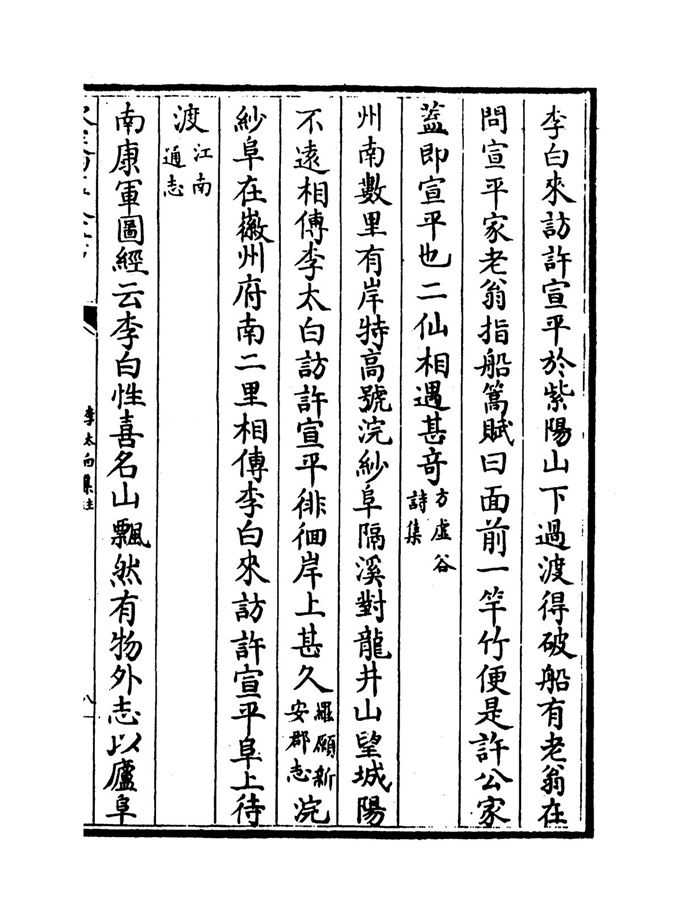 李白來訪許宣平於紫陽山下過渡得破船有老翁在
問宣平家老翁指船篙賦曰面前一竿竹便是許公家
葢即宣平也二仙相遇甚奇方虛谷詩集
州南數里有岸特高號浣紗阜隔溪對龍井山望城陽
不遠相傳李太白訪許宣平徘徊岸上甚久羅願新安郡志浣
紗阜在徽州府南二里相傳李白來訪許宣平阜上待
渡江南通志
南康軍圖經云李白性喜名山飄然有物外志以廬阜
李太白集注